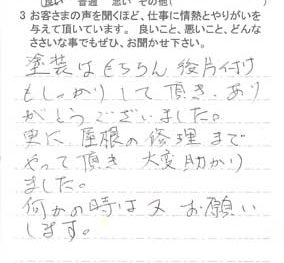 良い 普通 悪い その他(
3 お客さまの声を聞くほど、仕事に情熱とやりがいを
与えて頂いています。 良いこと、悪いこと、どんな
ささいな事でもぜひ、お聞かせ下さい。
塗装はもちろん 後片付け
もしっかりして頂き、あり
がとうございました。
更に 屋根の修理まで
やって頂き 大変助かり
ました。
何かの時は又 お願い
します。